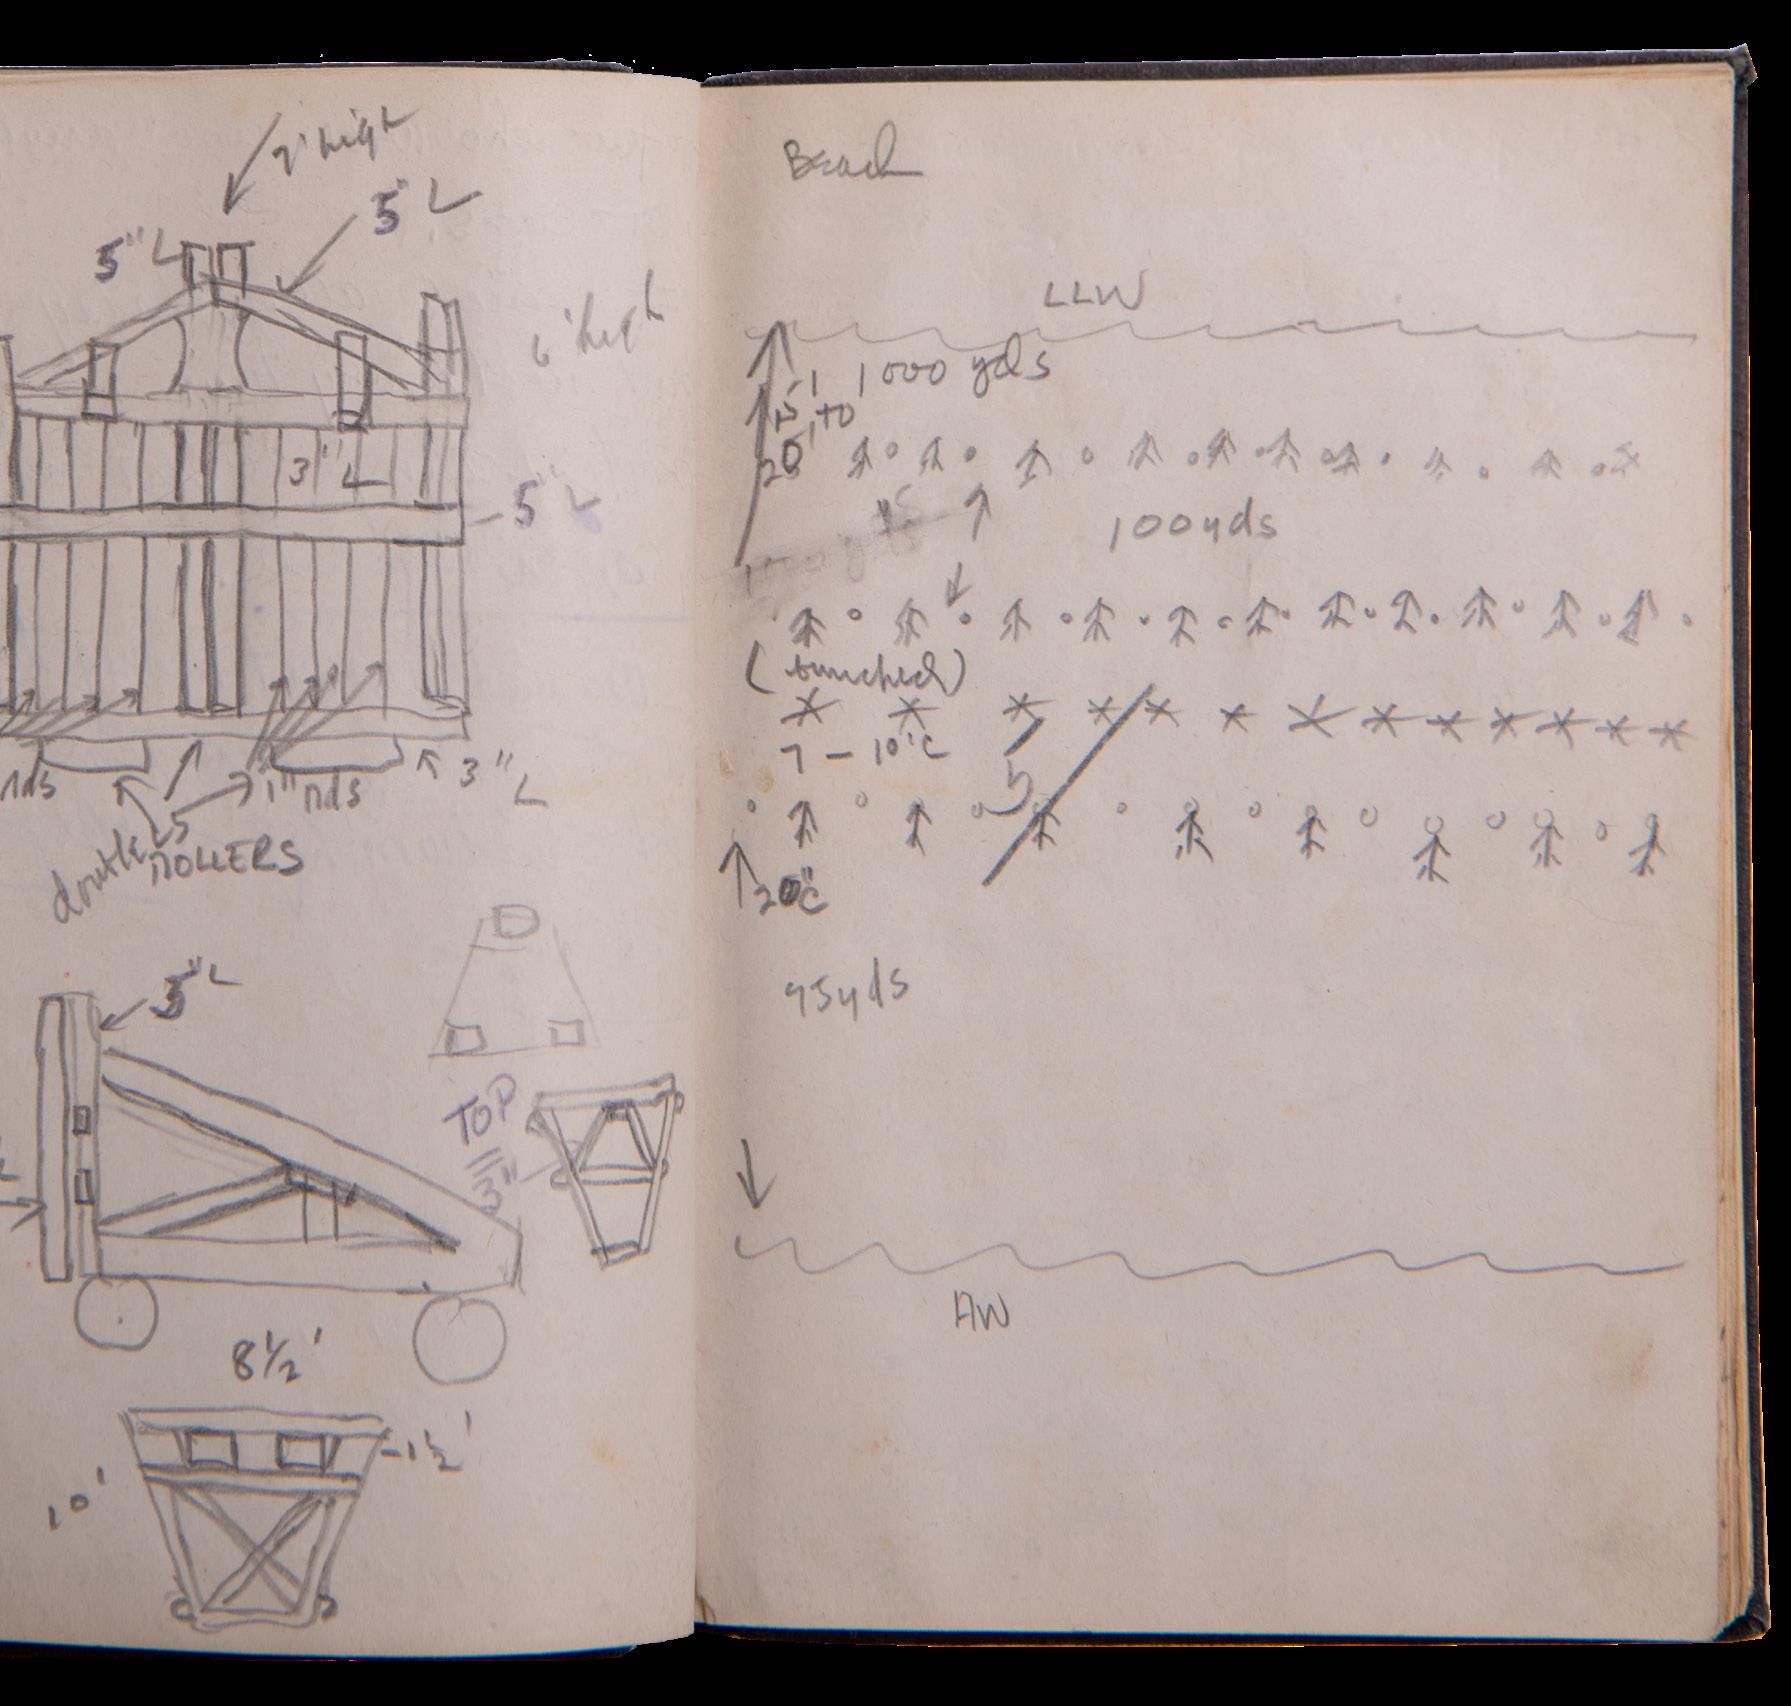 2' high
5" L
5" L
6' high
3" L
5" L
nds
1" nds
3" L
double
ROLLERS
5" L
TOP
3"
8 1/2'
1 1/2'
10'
Beach
LLW
1000 yds
15' to
20'
100 yds
(bunched)
7 - 10' C
20" C
75 yds
HW